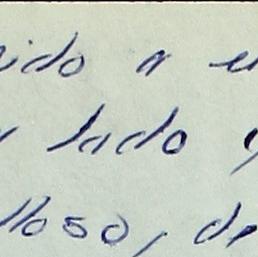 ido a e
lado
lloso, de